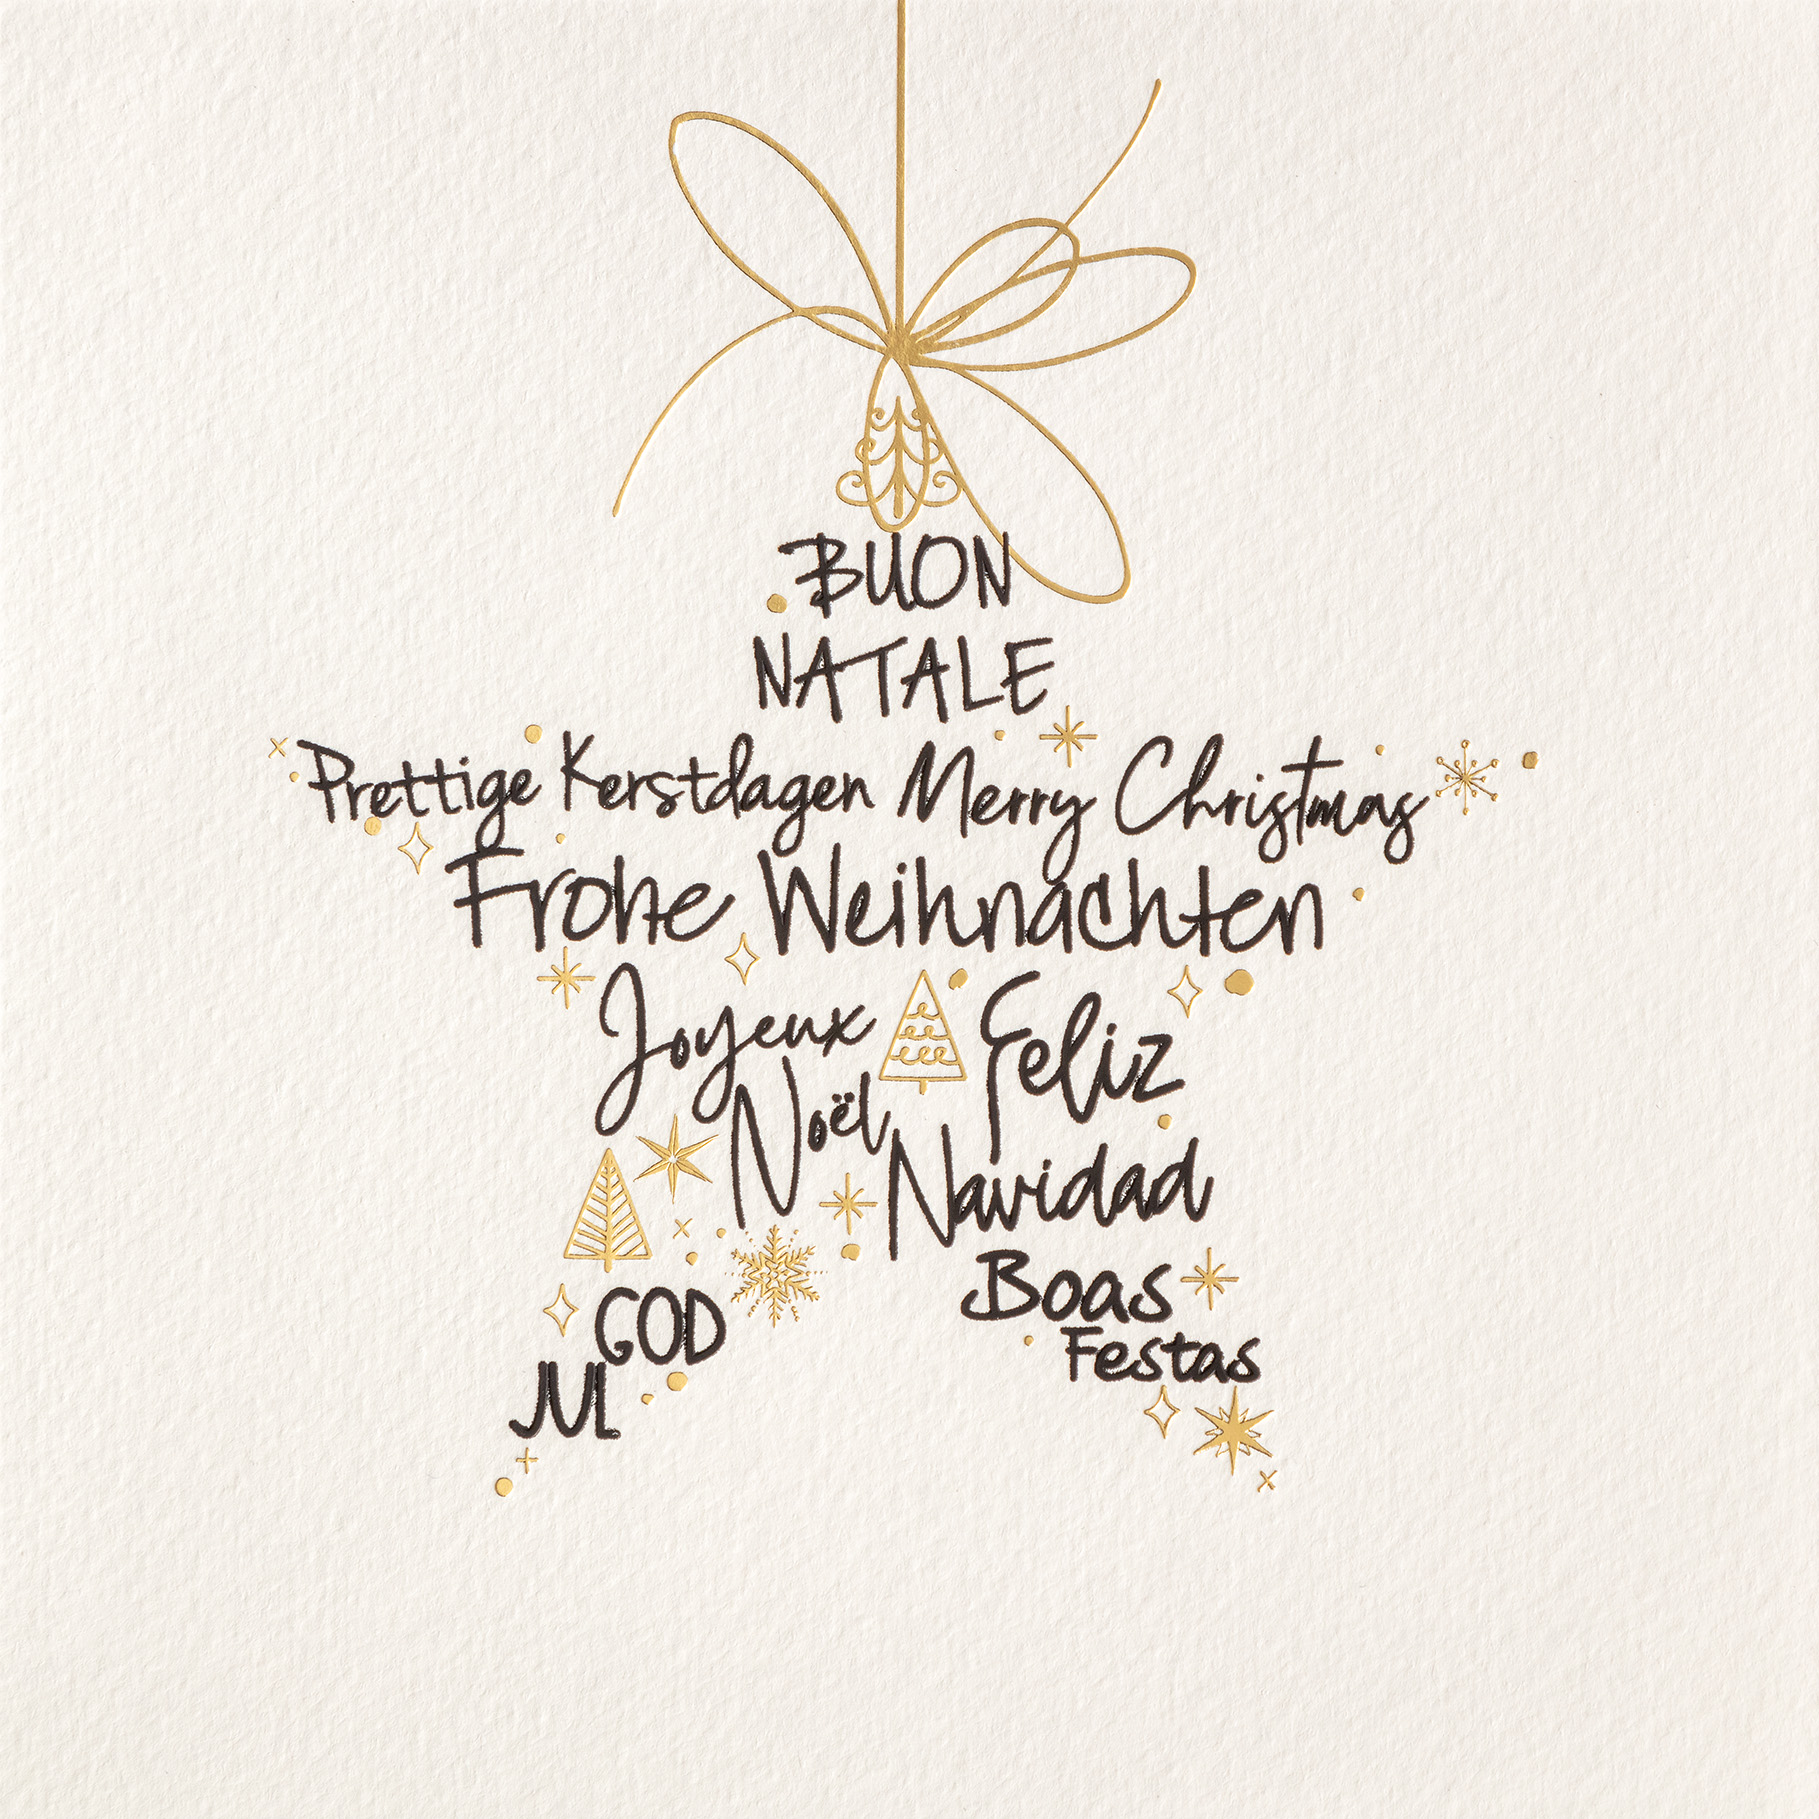 BUON
NATALE
Prettige Kerstdagen Merry Christmas
Frohe Weihnachten
Joyeux
Noël
Feliz
Navidad
GOD
JUL
Boas
Festas